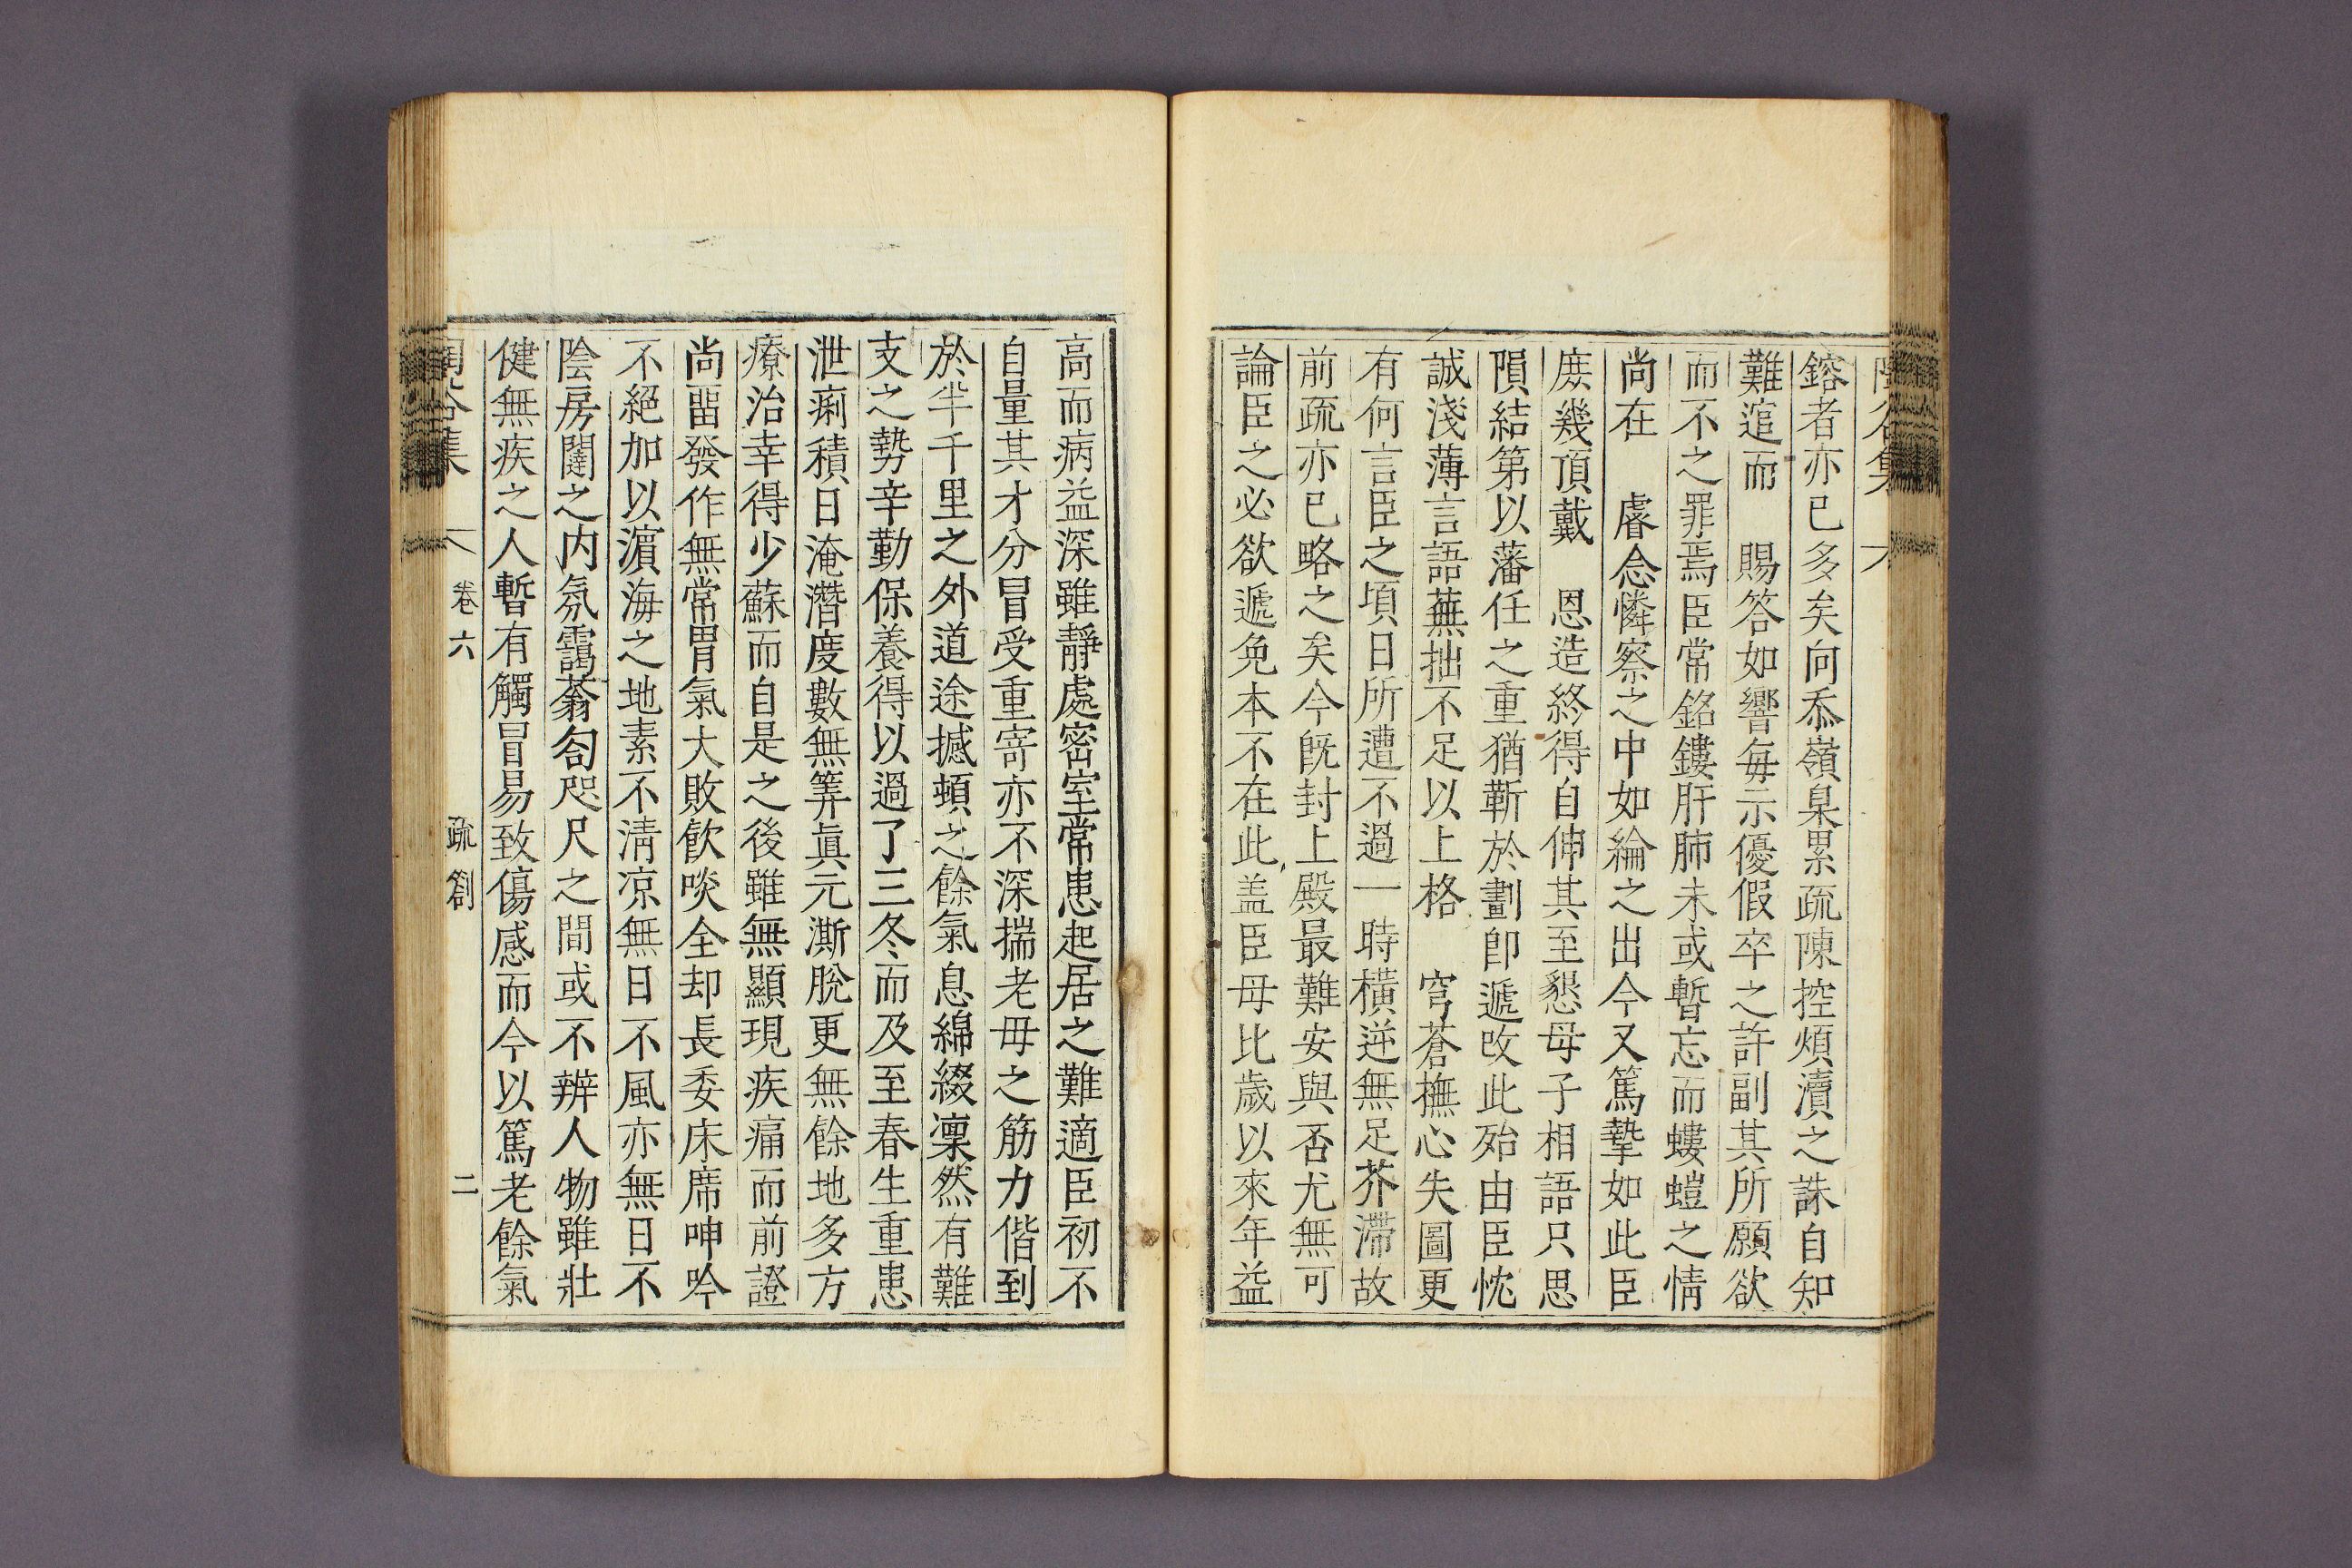 鎔者亦已多矣向忝嶺臬累疏陳控煩瀆之誅自知
難逭而　賜答如響每示優假卒之許副其所願欲
而不之罪焉臣常銘鏤肝肺未或暫忘而螻螘之情
尚在　睿念憐察之中如綸之出今又篤摯如此臣
庶幾頂戴　恩造終得自伸其至懇母子相語只思
隕結第以藩任之重猶靳於劃卽遞改此殆由臣忱
誠淺薄言語蕪拙不足以上格　穹蒼撫心失圖更
有何言臣之頃日所遭不過一時橫逆無足芥滯故
前疏亦已略之矣今旣封上殿最難安與否尤無可
論臣之必欲遞免本不在此盖臣母比歲以來年益
高而病益深雖靜處密室常患起居之難適臣初不
自量其才分冒受重寄亦不深揣老母之筋力偕到
於半千里之外道途撼頓之餘氣息綿綴凜然有難
支之勢辛勤保養得以過了三冬而及至春生重患
泄痢積日淹濳度數無筭眞元澌脫更無餘地多方
療治幸得少蘇而自是之後雖無顯現疾痛而前證
尚畱發作無常胃氣大敗飮啖全却長委床席呻吟
不絕加以濵海之地素不淸凉無日不風亦無日不
陰房闥之內氛靄蓊匌咫尺之間或不辨人物雖壯
健無疾之人暫有觸冒易致傷感而今以篤老餘氣
集
卷六
疏箚
二